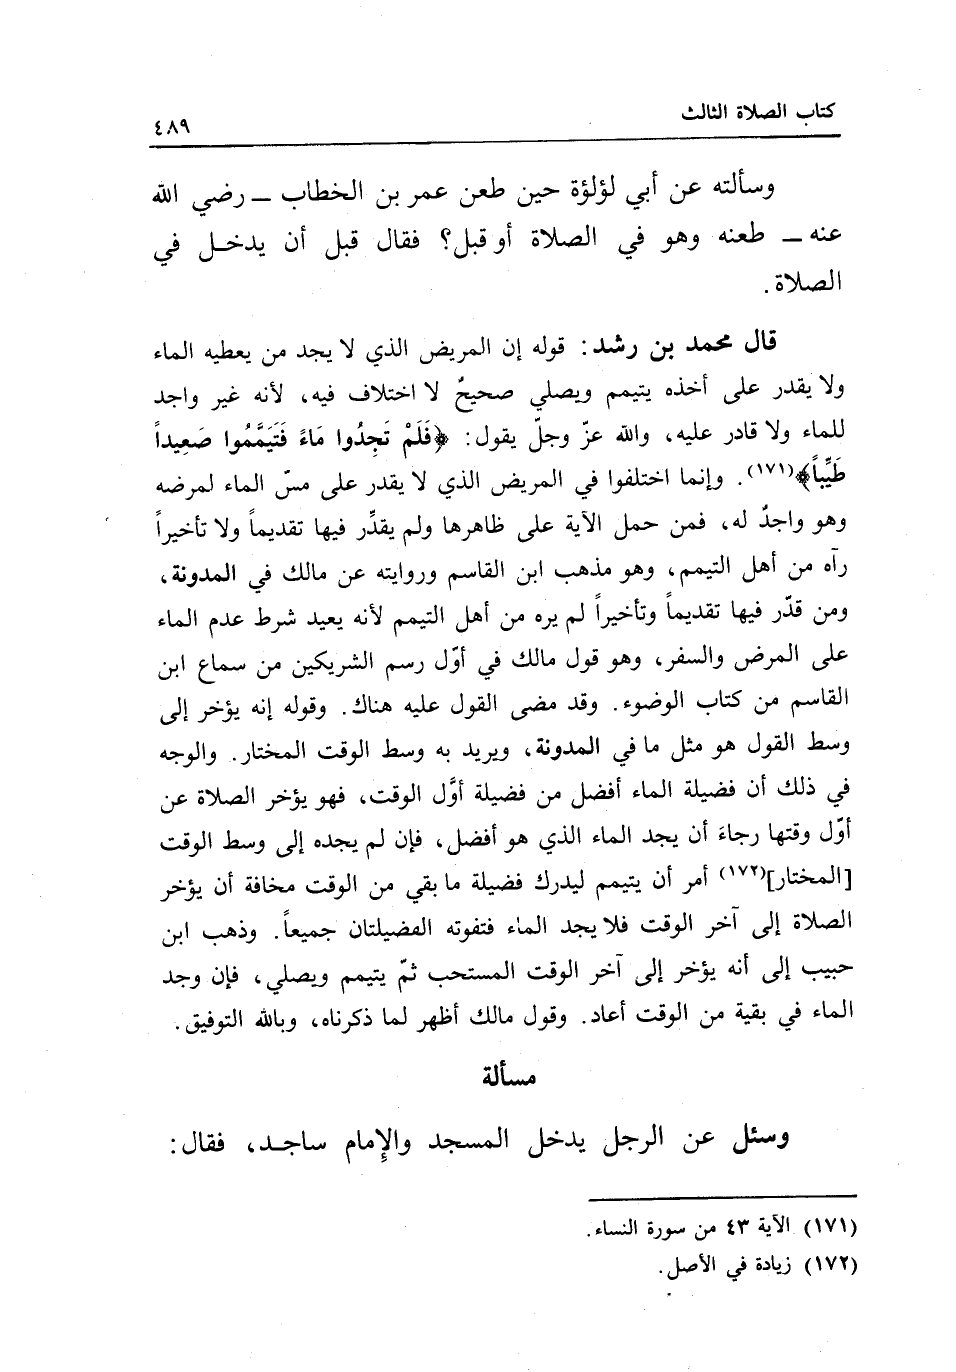 كتاب الصلاة الثالث
٤٨٩
وسألته عن أبي لؤلؤة حين طعن عمر بن الخطاب ــ رضي الله
عنه ــ طعنه وهو في الصلاة أو قبل؟ فقال قبل أن يدخل في
الصلاة.
قال محمد بن رشد: قوله إن المريض الذي لا يجد من يعطيه الماء
ولا يقدر على أخذه يتيمم ويصلي صحيحٌ لا اختلاف فيه، لأنه غير واجد
للماء ولا قادر عليه، والله عزّ وجلّ يقول: ﴿فَلَمْ تَجِدُوا مَاءً فَتَيَمَّمُوا صَعِيداً
طَيِّباً﴾(١٧١). وإنما اختلفوا في المريض الذي لا يقدر على مسّ الماء لمرضه
وهو واجدٌ له، فمن حمل الآية على ظاهرها ولم يقدِّر فيها تقديماً ولا تأخيراً
رآه من أهل التيمم، وهو مذهب ابن القاسم وروايته عن مالك في المدونة،
ومن قدّر فيها تقديماً وتأخيراً لم يره من أهل التيمم لأنه يعيد شرط عدم الماء
على المرض والسفر، وهو قول مالك في أوّل رسم الشريكين من سماع ابن
القاسم من كتاب الوضوء. وقد مضى القول عليه هناك. وقوله إنه يؤخر إلى
وسط القول هو مثل ما في المدونة، ويريد به وسط الوقت المختار. والوجه
في ذلك أن فضيلة الماء أفضل من فضيلة أوَّل الوقت، فهو يؤخر الصلاة عن
أوّل وقتها رجاءَ أن يجد الماء الذي هو أفضل، فإن لم يجده إلى وسط الوقت
[المختار](١٧٢) أمر أن يتيمم ليدرك فضيلة ما بقي من الوقت مخافة أن يؤخر
الصلاة إلى آخر الوقت فلا يجد الماء فتفوته الفضيلتان جميعاً. وذهب ابن
حبيب إلى أنه يؤخر إلى آخر الوقت المستحب ثمّ يتيمم ويصلي، فإن وجد
الماء في بقية من الوقت أعاد. وقول مالك أظهر لما ذكرناه، وبالله التوفيق.
مسألة
وسئل عن الرجل يدخل المسجد والإمام ساجد، فقال:
(١٧١) الآية ٤٣ من سورة النساء.
(١٧٢) زيادة في الأصل.